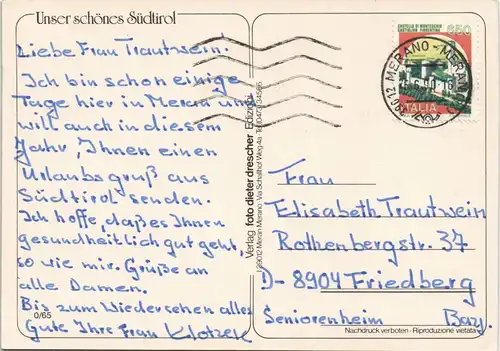 Unser schönes Südtirol
Liebe Frau Trautwein!
Ich bin schon einige
Tage hier in Meran und
will auch in diesem
Jahr, Ihnen einen
Urlaubsgruß aus
Südtirol senden.
Ich hoffe, daß es Ihnen
gesundheitlich gut geht,
so wie mir. Grüße an
alle Damen.
Bis zum Wiedersehen alles
Gute Ihre Frau Klotzek
0/65
Verlag foto dieter drescher Edizioni
I-39012 Meran Merano Via Schaffhof Weg 4a Tel. 0473/34565
650
CASTELLO DI MONTECCHIO
CASTIGLION FIORENTINO
ITALIA
39012 MERANO - MERAN
Frau
Elisabeth Trautwein
Rothenbergstr. 37
D- 8904 Friedberg
Seniorenheim Bay.
Nachdruck verboten - Riproduzione vietata